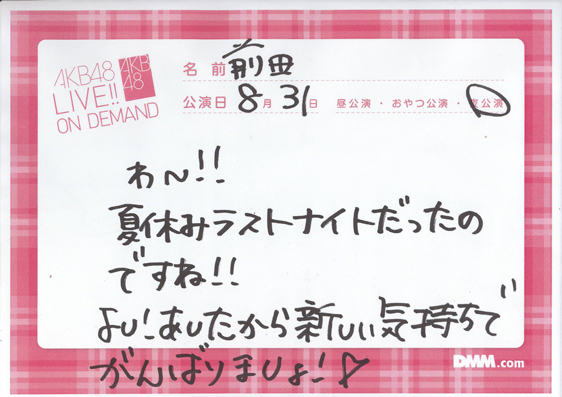 AKB48
LIVE!!
ON DEMAND
AKB
48
名前 前田
公演日 8月 31日 昼公演・おやつ公演・夜公演
わ〜!!
夏休みラストナイトだったの
ですね!!
よし!あしたから新しい気持ちで
がんばりましょ!♡
DMM.com